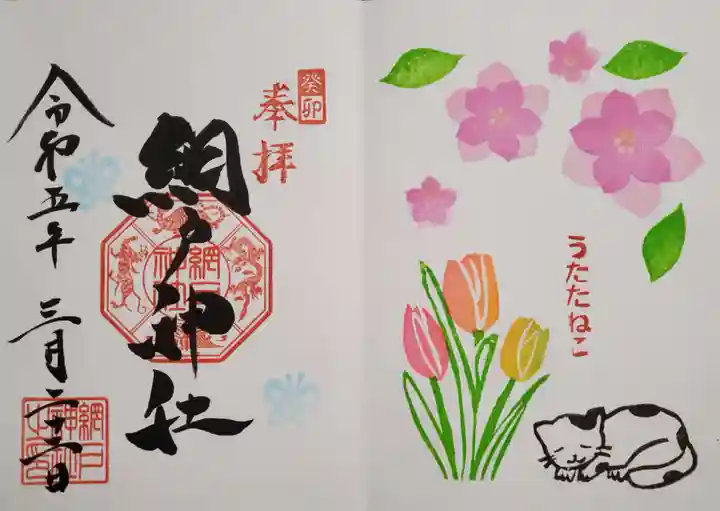 癸卯
奉拝
網戸神社
網戸神社
令和五年 三月二十六日
うたたねこ